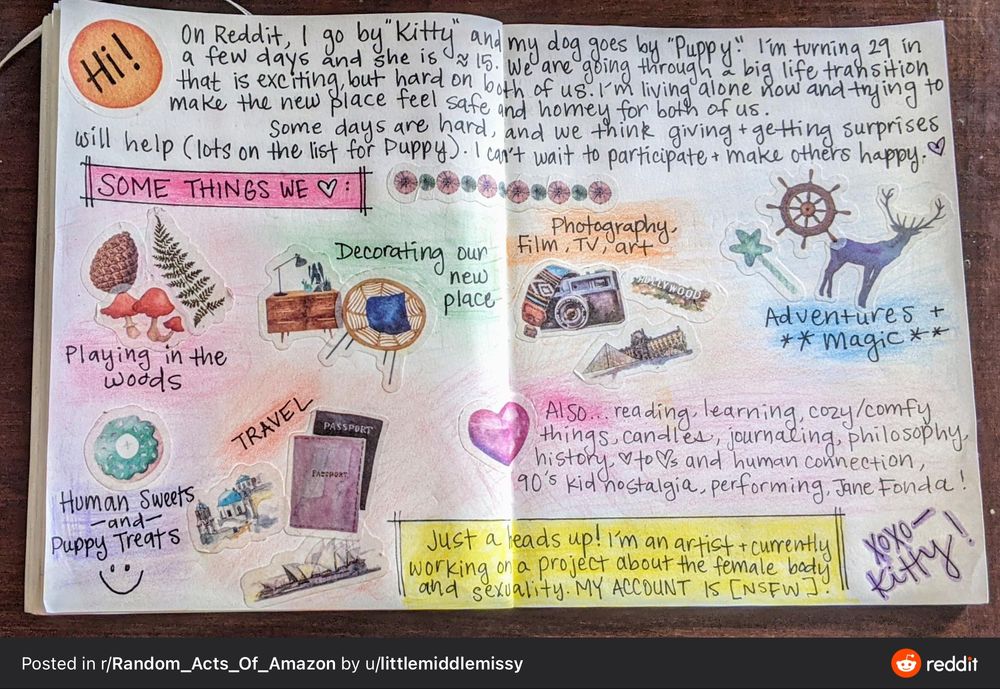 Hi!
On Reddit, I go by "Kitty" and my dog goes by "Puppy." I'm turning 29 in
a few days and she is ≈ 15. We are going through a big life transition
that is exciting, but hard on both of us. I'm living alone now and trying to
make the new place feel safe and homey for both of us.
Some days are hard, and we think giving + getting surprises
will help (lots on the list for Puppy). I can't wait to participate + make others happy. ♡
SOME THINGS WE ♡:
Playing in the
woods
Decorating our
new
place
Photography,
Film, TV, art
HOLLYWOOD
Adventures +
** magic **
Human Sweets
—and—
Puppy Treats
TRAVEL
PASSPORT
PASSPORT
Also... reading, learning, cozy/comfy
things, candles, journaling, philosophy,
history, ♡ to ♡s and human connection,
90's kid nostalgia, performing, Jane Fonda!
Just a heads up! I'm an artist + currently
working on a project about the female body
and sexuality. MY ACCOUNT IS [NSFW].
XOXO—
Kitty!
Posted in r/Random_Acts_Of_Amazon by u/littlemiddlemissy
reddit